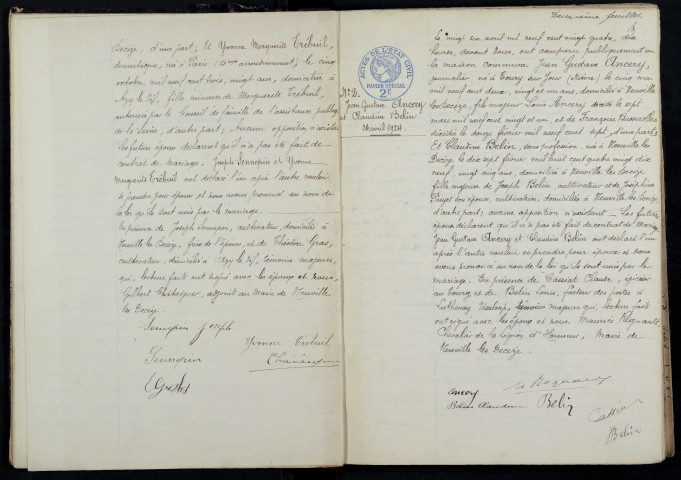 Decize, d'une part, Et Yvonne Marguerite Trébuil,
domestique, née à Paris arrondissement, le cinq
octobre mil neuf cent trois, vingt ans, domiciliée à
fille mineure de Marguerite Trébuil,
autorisée par le Conseil de famille de l'assistance publique
de la Seine, d'autre part; Aucune opposition n'existant
Les futurs époux déclarent qu'il n'a pas été fait de
contrat de mariage. Joseph Sennepin et Yvonne
Marguerite Trébuil ont déclaré l'un après l'autre vouloir
se prendre pour époux et nous avons prononcé au nom de
la loi qu'ils sont unis par le mariage.
En présence de Joseph Sennepin, cultivateur, domicilié à
Neuville les Decize, père de l'époux, et de Théodore Gras,
cultivateur, domicilié à témoins majeurs,
qui, lecture faite ont signé avec les époux et nous,
Gilbert Chataigner, adjoint au Maire de Neuville
les Decize.
Sennepin Joseph
Yvonne Trébuil
Sennepin
Deuxième feuillet
N° 2.
Jean Gustave Ancery
et Claudine Belin
26 avril 1924.
ACTES DE L'ETAT CIVIL
PAPIER SPECIAL
2F
Le vingt six avril mil neuf cent vingt quatre, dix
heures, devant nous, ont comparu publiquement en
la maison commune Jean Gustave Ancery,
journalier, né à Toury sur Jour (Nièvre) le cinq mai
mil neuf cent deux, vingt et un ans, domicilié à Neuville
les Decize, fils majeur Louis Ancery décédé le sept
mars mil neuf cent vingt et un, et de Françoise
décédée le douze février mil neuf cent sept, d'une part;
Et Claudine Belin, sans profession, née à Neuville les
Decize le dix sept février mil huit cent quatre vingt dix
neuf, vingt cinq ans, domiciliée à Neuville les Decize
fille majeure de Joseph Belin, cultivateur et de Joséphine
son épouse, cultivatrice, domiciliés à Neuville les Decize,
d'autre part; aucune opposition n'existant - Les futurs
époux déclarent qu'il n'a pas été fait de contrat de mariage
Jean Gustave Ancery et Claudine Belin ont déclaré l'un
après l'autre vouloir se prendre pour époux et nous
avons prononcé au nom de la loi qu'ils sont unis par le
mariage. En présence de Claude, épicier
au bourg et de Belin Louis, facteur des postes à
Luthenay Uxeloup, témoins majeurs qui, lecture faite
ont signé avec les époux et nous Maurice Regnault
Chevalier de la Légion d'Honneur, Maire de
Neuville les Decize.
Ancery
Belin Claudine
Belin
Belin